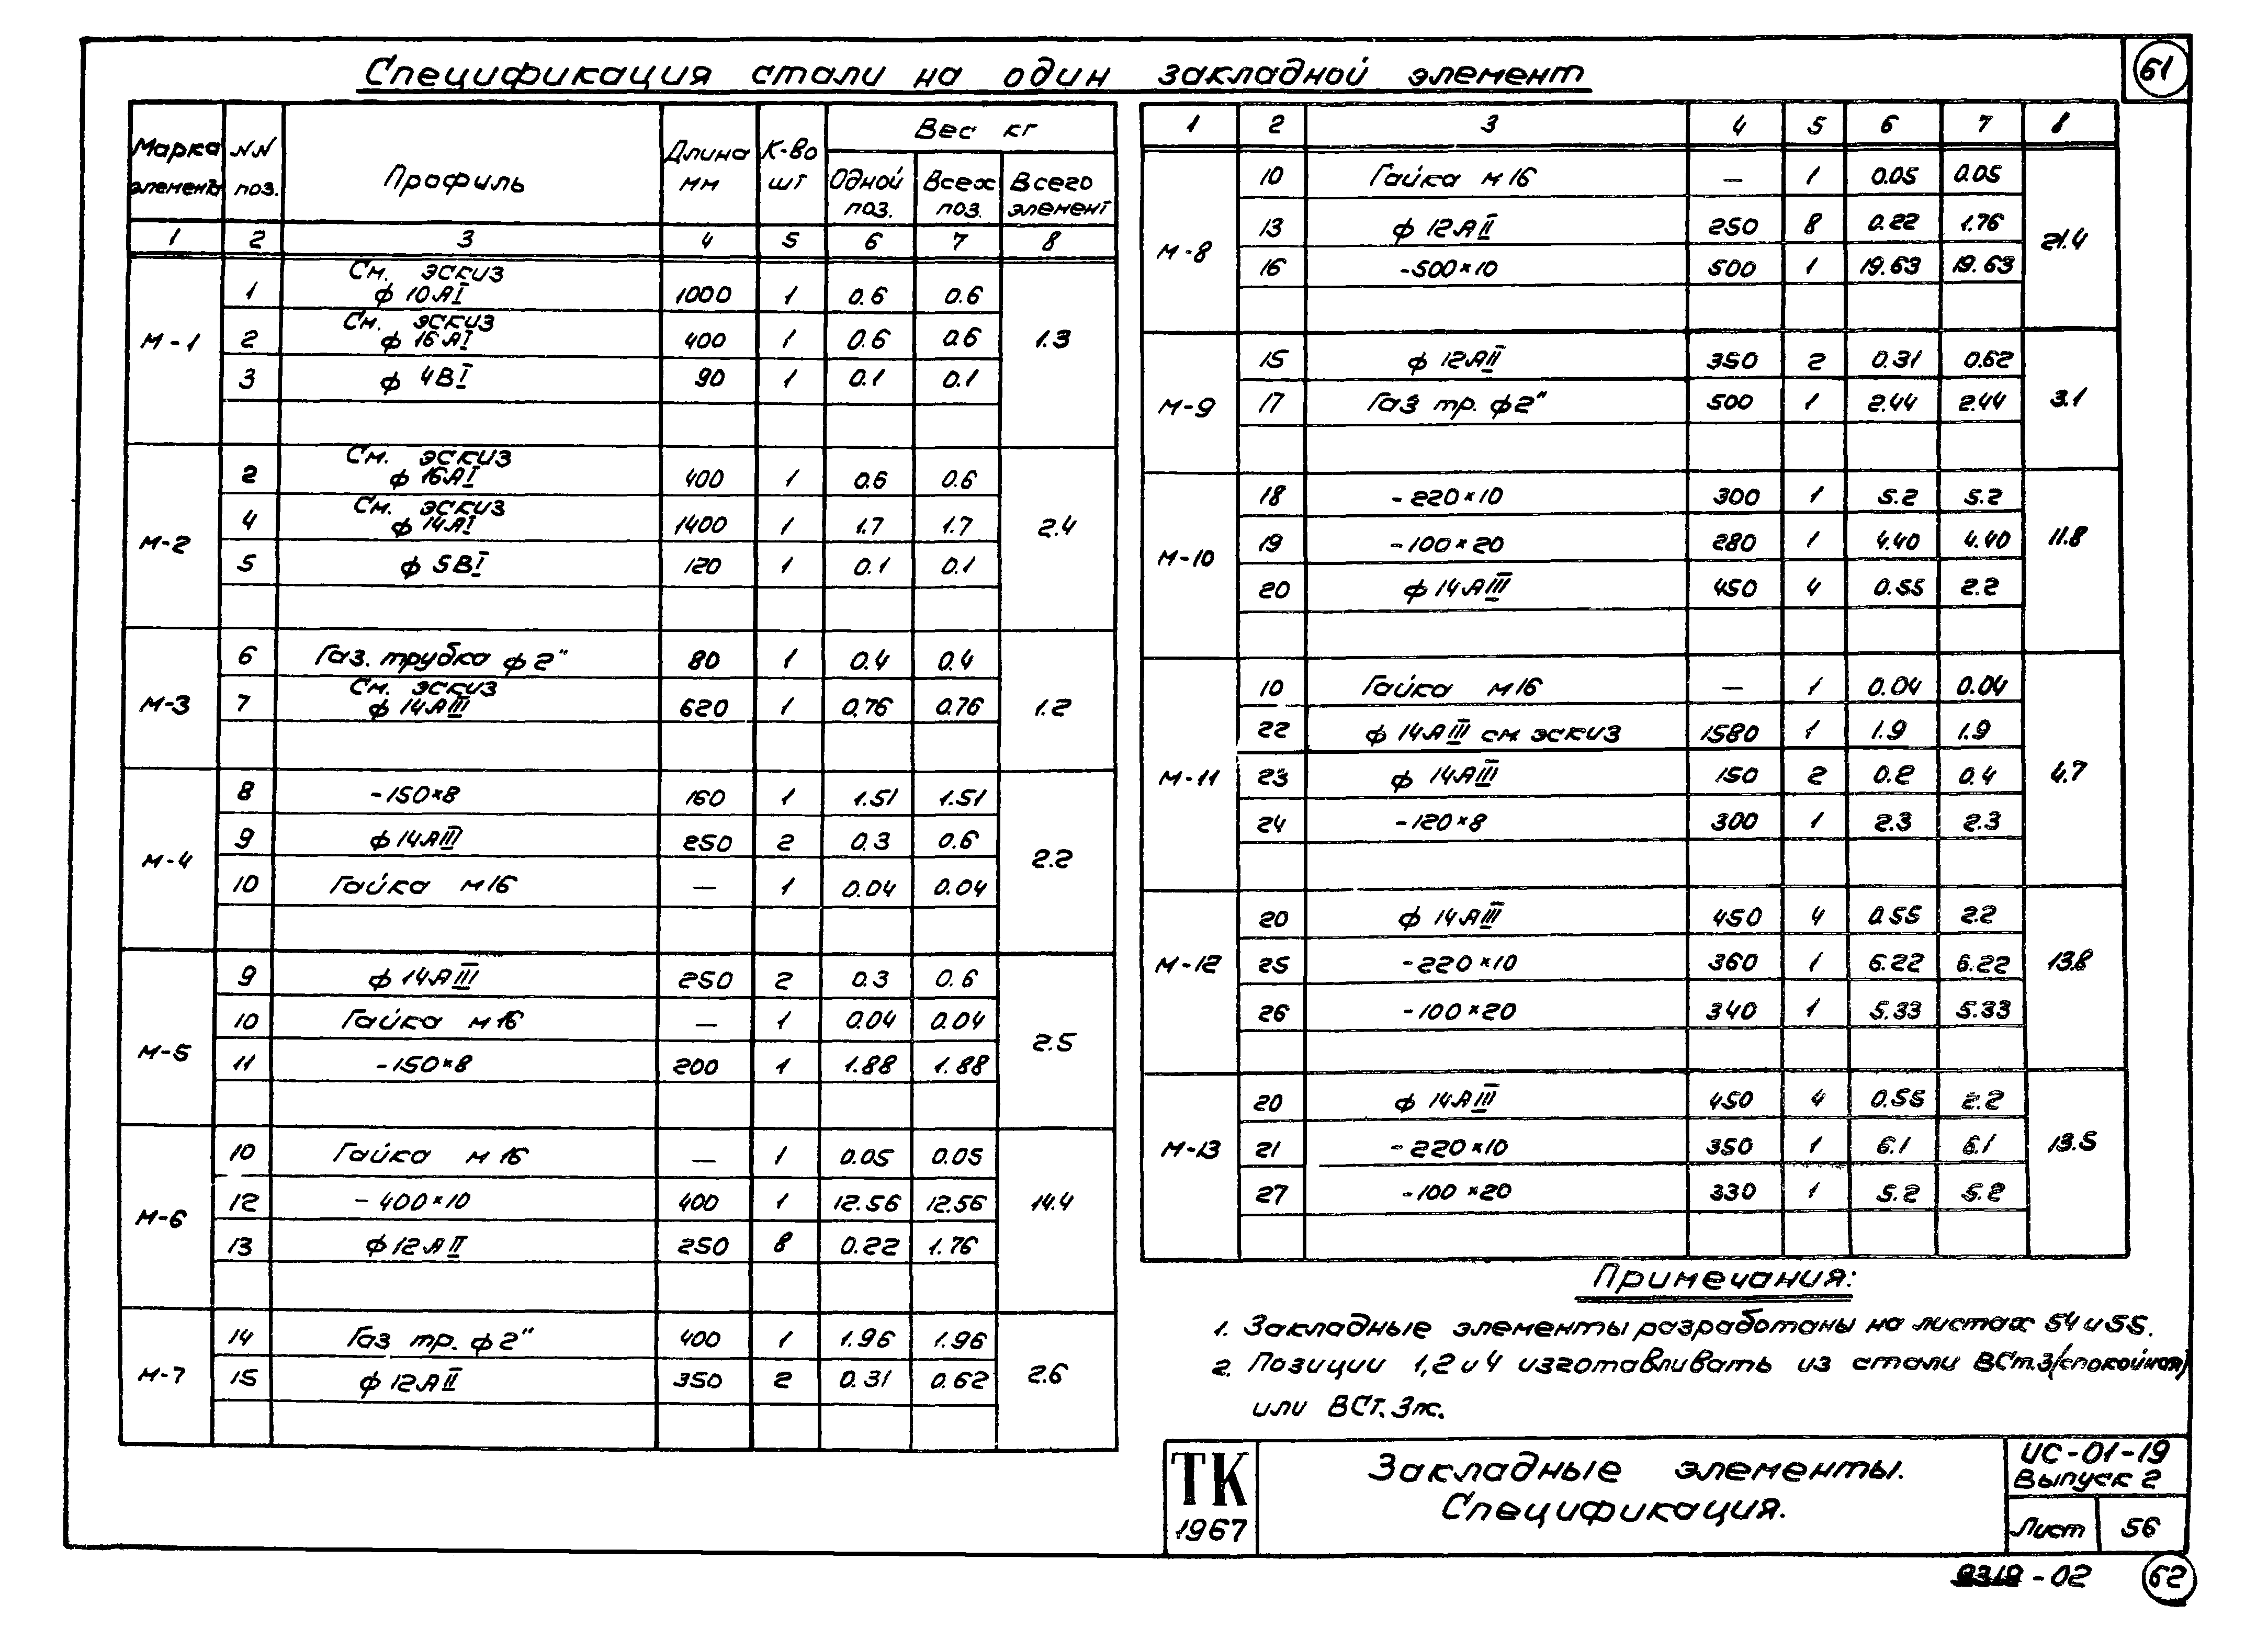 61
Спецификация стали на один закладной элемент
Марка элемента | NN поз. | Профиль | Длина мм | К-во шт | Вес кг
Одной поз. | Всех поз. | Всего элемент
1 | 2 | 3 | 4 | 5 | 6 | 7 | 8
М-1 | 1 | См. эскиз ф 10АI | 1000 | 1 | 0.6 | 0.6 | 1.3
2 | См. эскиз ф 16АI | 400 | 1 | 0.6 | 0.6
3 | ф 4ВI | 90 | 1 | 0.1 | 0.1
М-2 | 2 | См. эскиз ф 16АI | 400 | 1 | 0.6 | 0.6 | 2.4
4 | См. эскиз ф 14АI | 1400 | 1 | 1.7 | 1.7
5 | ф 5ВI | 120 | 1 | 0.1 | 0.1
М-3 | 6 | Газ. трубка ф 2" | 80 | 1 | 0.4 | 0.4 | 1.2
7 | См. эскиз ф 14АIII | 620 | 1 | 0.76 | 0.76
М-4 | 8 | -150×8 | 160 | 1 | 1.51 | 1.51 | 2.2
9 | ф 14АIII | 250 | 2 | 0.3 | 0.6
10 | Гайка м16 | — | 1 | 0.04 | 0.04
М-5 | 9 | ф 14АIII | 250 | 2 | 0.3 | 0.6 | 2.5
10 | Гайка м16 | — | 1 | 0.04 | 0.04
11 | -150×8 | 200 | 1 | 1.88 | 1.88
М-6 | 10 | Гайка м16 | — | 1 | 0.05 | 0.05 | 14.4
12 | -400×10 | 400 | 1 | 12.56 | 12.56
13 | ф 12АII | 250 | 8 | 0.22 | 1.76
М-7 | 14 | Газ тр. ф 2" | 400 | 1 | 1.96 | 1.96 | 2.6
15 | ф 12АII | 350 | 2 | 0.31 | 0.62
1 | 2 | 3 | 4 | 5 | 6 | 7 | 8
М-8 | 10 | Гайка м16 | — | 1 | 0.05 | 0.05 | 21.4
13 | ф 12АII | 250 | 8 | 0.22 | 1.76
16 | -500×10 | 500 | 1 | 19.63 | 19.63
М-9 | 15 | ф 12АII | 350 | 2 | 0.31 | 0.62 | 3.1
17 | Газ тр. ф2" | 500 | 1 | 2.44 | 2.44
М-10 | 18 | -220×10 | 300 | 1 | 5.2 | 5.2 | 11.8
19 | -100×20 | 280 | 1 | 4.40 | 4.40
20 | ф 14АIII | 450 | 4 | 0.55 | 2.2
М-11 | 10 | Гайка м16 | — | 1 | 0.04 | 0.04 | 4.7
22 | ф 14АIII см эскиз | 1580 | 1 | 1.9 | 1.9
23 | ф 14АIII | 150 | 2 | 0.2 | 0.4
24 | -120×8 | 300 | 1 | 2.3 | 2.3
М-12 | 20 | ф 14АIII | 450 | 4 | 0.55 | 2.2 | 13.8
25 | -220×10 | 360 | 1 | 6.22 | 6.22
26 | -100×20 | 340 | 1 | 5.33 | 5.33
М-13 | 20 | ф 14АIII | 450 | 4 | 0.55 | 2.2 | 13.5
21 | -220×10 | 350 | 1 | 6.1 | 6.1
27 | -100×20 | 330 | 1 | 5.2 | 5.2
Примечания:
1. Закладные элементы разработаны на листах 54 и 55.
2. Позиции 1, 2 и 4 изготавливать из стали ВСт.3 (спокойная)
или ВСт.3пс.
ТК
1967
Закладные элементы.
Спецификация.
ИС-01-19
Выпуск 2
Лист 56
-02 62